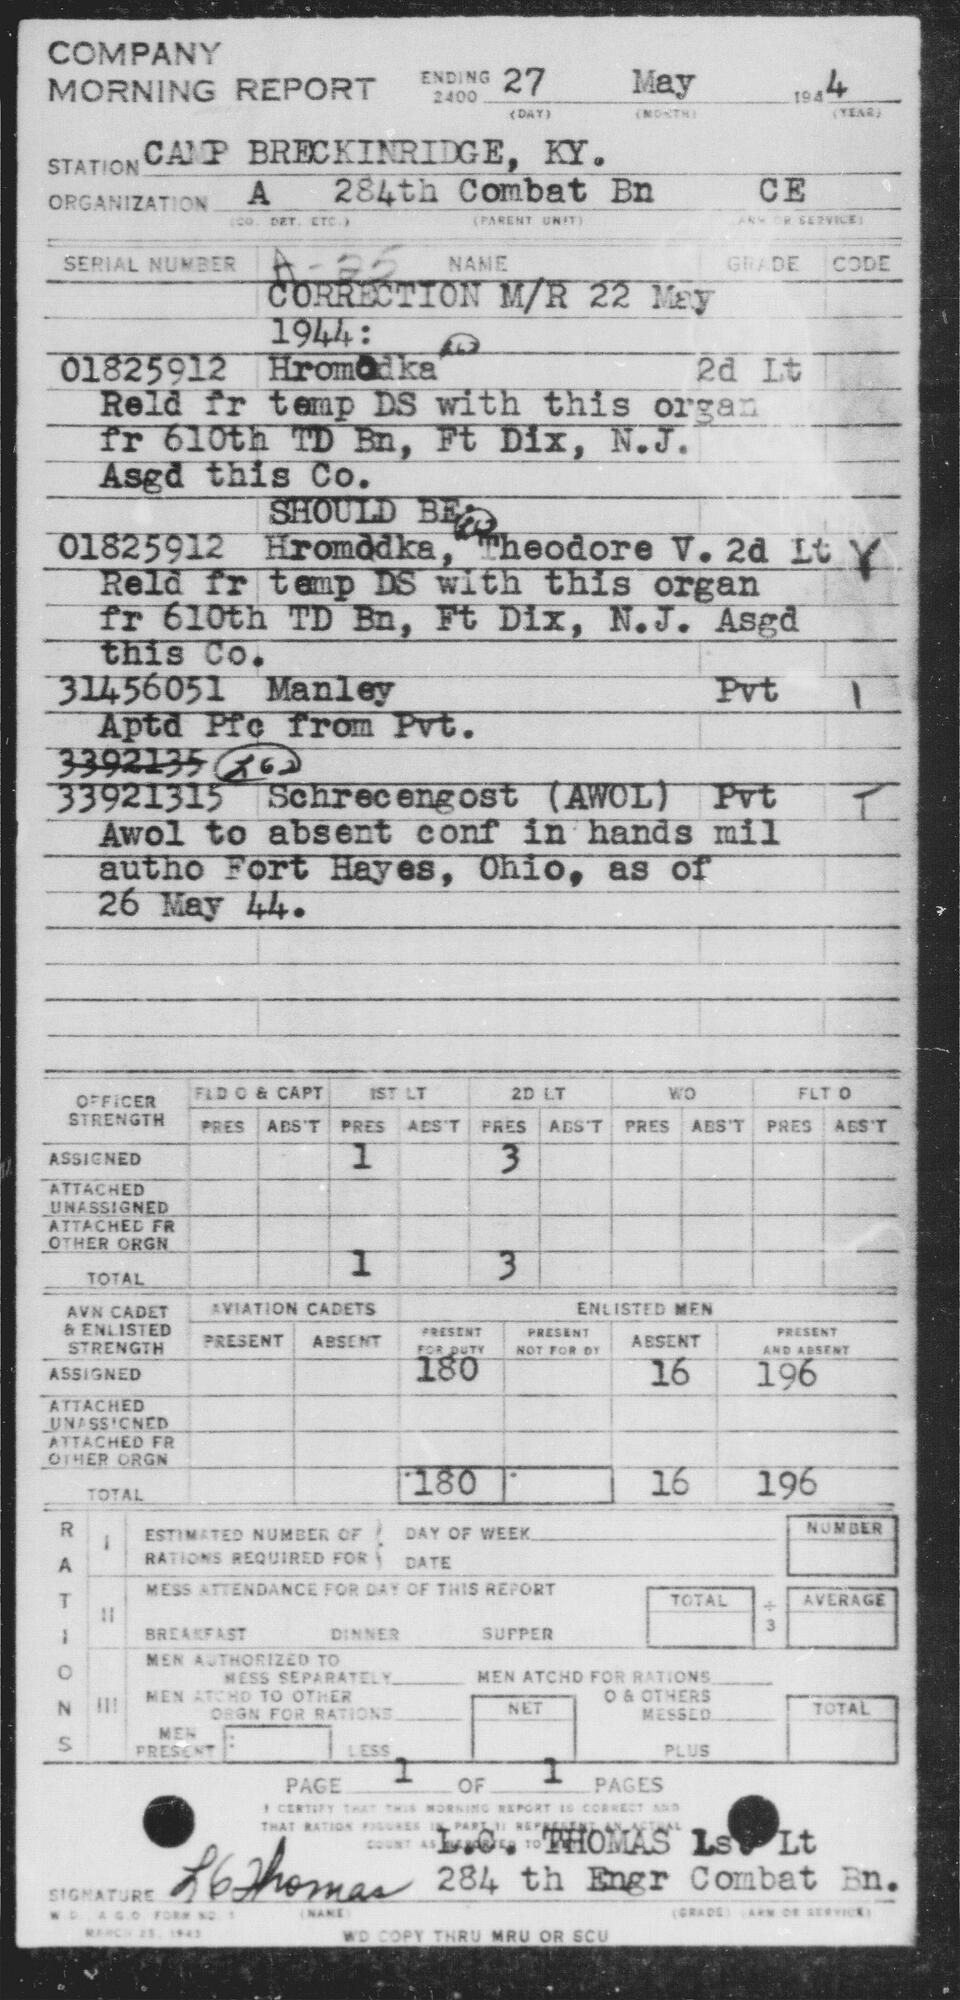 COMPANY
MORNING REPORT ENDING 2400 27 May 1944
(DAY) (MONTH) (YEAR)
STATION CAMP BRECKINRIDGE, KY.
ORGANIZATION A 284th Combat Bn CE
(CO. DET. ETC.) (PARENT UNIT) (ARM OR SERVICE)
SERIAL NUMBER NAME GRADE CODE
CORRECTION M/R 22 May
1944:
01825912 Hromodka 2d Lt
Reld fr temp DS with this organ
fr 610th TD Bn, Ft Dix, N.J.
Asgd this Co.
SHOULD BE:
01825912 Hromodka, Theodore V. 2d Lt Y
Reld fr temp DS with this organ
fr 610th TD Bn, Ft Dix, N.J. Asgd
this Co.
31456051 Manley Pvt 1
Aptd Pfc from Pvt.
3392135
33921315 Schrecengost (AWOL) Pvt T
Awol to absent conf in hands mil
autho Fort Hayes, Ohio, as of
26 May 44.
OFFICER STRENGTH FLD O & CAPT 1ST LT 2D LT WO FLT O
PRES ABS'T PRES ABS'T PRES ABS'T PRES ABS'T PRES ABS'T
ASSIGNED 1 3
ATTACHED UNASSIGNED
ATTACHED FR OTHER ORGN
TOTAL 1 3
AVN CADET & ENLISTED STRENGTH AVIATION CADETS ENLISTED MEN
PRESENT ABSENT PRESENT FOR DUTY PRESENT NOT FOR DY ABSENT PRESENT AND ABSENT
ASSIGNED 180 16 196
ATTACHED UNASSIGNED
ATTACHED FR OTHER ORGN
TOTAL 180 16 196
RATIONS
I ESTIMATED NUMBER OF RATIONS REQUIRED FOR DAY OF WEEK DATE NUMBER
II MESS ATTENDANCE FOR DAY OF THIS REPORT TOTAL ÷ 3 AVERAGE
BREAKFAST DINNER SUPPER
III MEN AUTHORIZED TO MESS SEPARATELY MEN ATCHD FOR RATIONS
MEN ATCHD TO OTHER ORGN FOR RATIONS NET O & OTHERS MESSED TOTAL
MEN PRESENT LESS PLUS
PAGE 1 OF 1 PAGES
I CERTIFY THAT THIS MORNING REPORT IS CORRECT AND
THAT RATION FIGURES IN PART II REPRESENT AN ACTUAL
COUNT AS REPORTED TO
L.C. THOMAS 1st Lt
SIGNATURE L C Thomas 284 th Engr Combat Bn.
(NAME) (GRADE) (ARM OR SERVICE)
W. D., A. G. O. FORM NO. 1
MARCH 25, 1943
WD COPY THRU MRU OR SCU